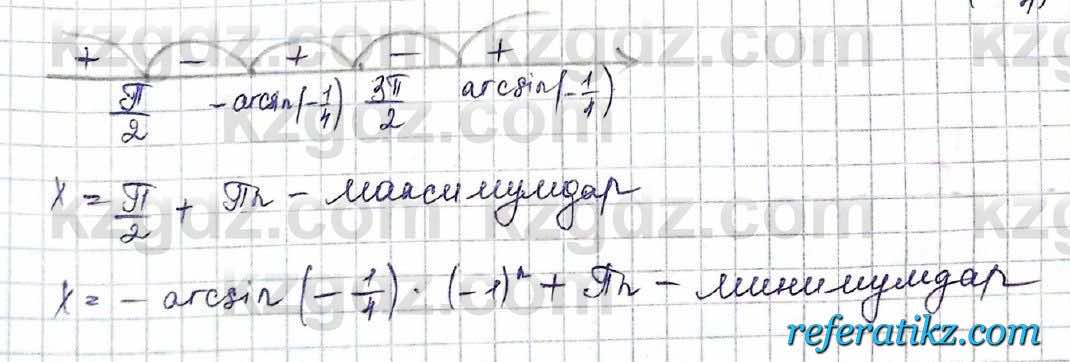 + − + − +
π/2 -arcsin(-1/4) 3π/2 arcsin(-1/4)
x = π/2 + πn - максимумдар
x = - arcsin (-1/4) · (-1)ⁿ + πn - минимумдар
kzgdz.com
referatikz.com